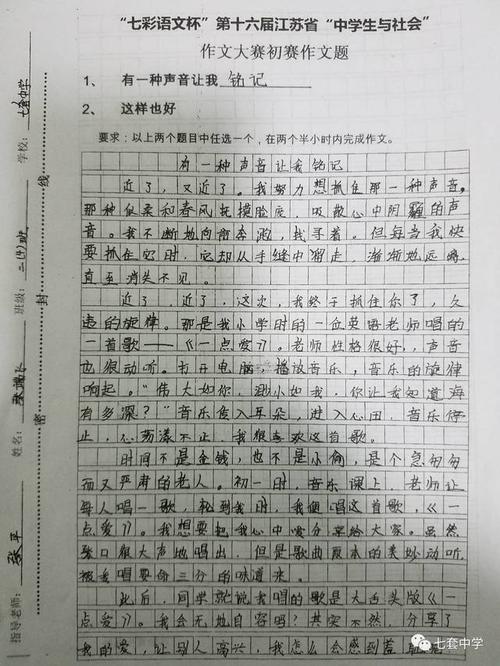 “七彩语文杯”第十六届江苏省“中学生与社会”
作文大赛初赛作文题
1、 有一种声音让我 铭记
2、 这样也好
要求：以上两个题目中任选一个，在两个半小时内完成作文。
有一种声音让我铭记
近了，又近了。我努力想抓住那一种声音。
那种似柔和春风抚摸脸庞，吸散心中阴霾的声
音。我不断地向前奔跑，找寻着。但每当我快
要抓住它时，它却从手缝中溜走，渐渐地远离，
直至消失不见。
近了，近了，这次，我终于抓住你了，久
违的旋律。那是我小学时的一位英语老师唱的
一首歌——《一点爱》。老师性格很好，声音
也很动听。打开电脑，播放音乐，音乐的旋律
响起。“伟大如你，渺小如我，你让我知道海
有多深？”音乐传入耳朵，进入心田，音乐停
止，心荡漾不止，我很喜欢这首歌。
时间不是金钱，也不是小偷，是个急匆匆
而又严肃的老人。初一时，音乐课上，老师让
每人唱一歌，轮到我时，我便唱这首歌，《一
点爱》。我想要把我心中爱分享给大家。虽然
张口很大声地唱出，但是歌曲原本的美妙动听，
被我唱要命三分的味道来。
此后，同学就说我唱的歌是大舌头版《一
点爱》。我会无地自容吗？其实不然，分享了
我的爱，让别人高兴，我怎么会感到羞耻
学校：七套中学
班级：二(4)班
姓名：
指导老师：张平
密 封 线
七套中学